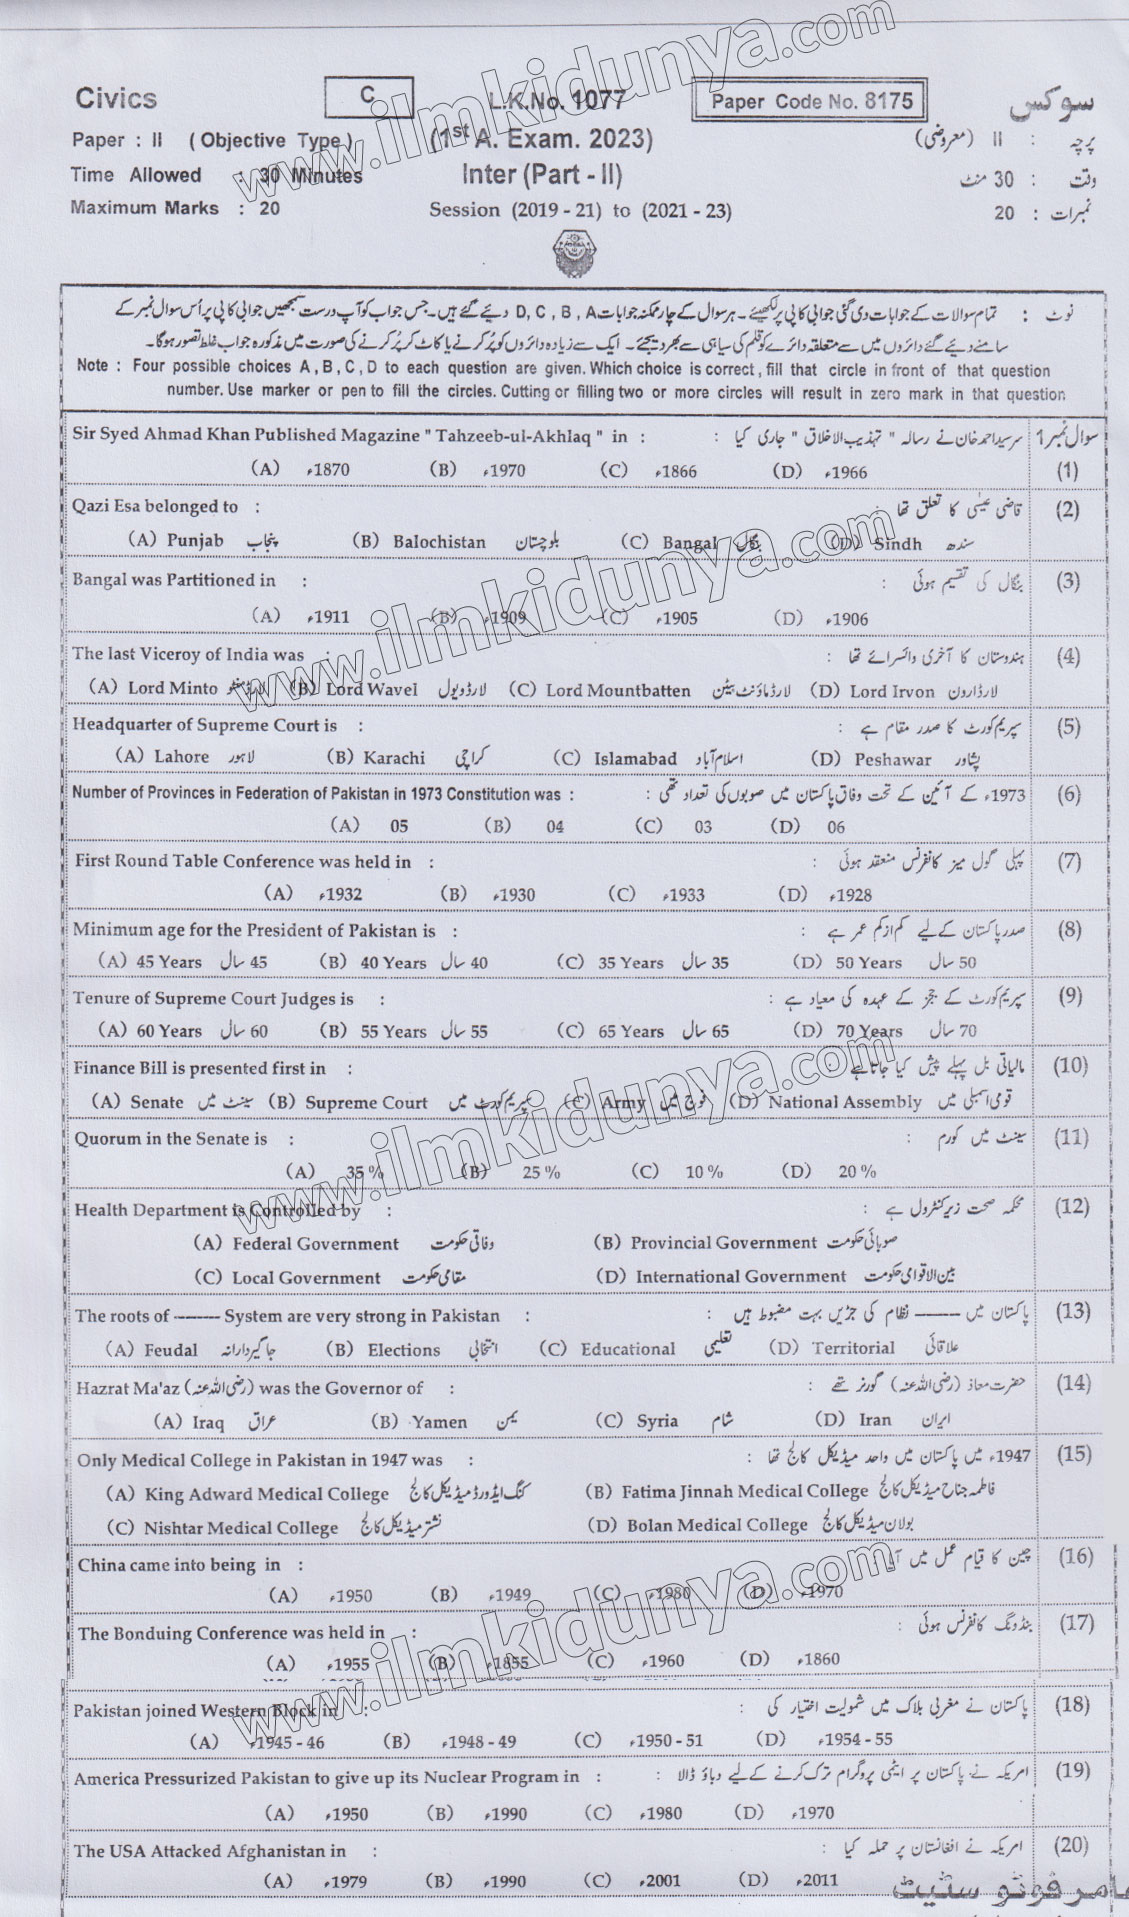 Civics
C
L.K.No. 1077
Paper Code No. 8175
سوکس
Paper : II ( Objective Type )
(1st A. Exam. 2023)
پرچہ : II (معروضی)
Time Allowed : 30 Minutes
Inter (Part - II)
وقت : 30 منٹ
Maximum Marks : 20
Session (2019 - 21) to (2021 - 23)
نمبرات : 20
نوٹ : تمام سوالات کے جوابات دی گئی جوابی کاپی پر لکھیئے۔ ہر سوال کے چار ممکنہ جوابات D, C , B , A دیئے گئے ہیں۔ جس جواب کو آپ درست سمجھیں جوابی کاپی پر اُس سوال نمبر کے
سامنے دیئے گئے دائروں میں سے متعلقہ دائرے کو قلم کی سیاہی سے بھر دیجئے۔ ایک سے زیادہ دائروں کو پُر کرنے یا کاٹ کر پُر کرنے کی صورت میں مذکورہ جواب غلط تصور ہوگا۔
Note : Four possible choices A , B , C , D to each question are given. Which choice is correct , fill that circle in front of that question
number. Use marker or pen to fill the circles. Cutting or filling two or more circles will result in zero mark in that question
Sir Syed Ahmad Khan Published Magazine " Tahzeeb-ul-Akhlaq " in : سرسید احمد خان نے رسالہ " تہذیب الاخلاق " جاری کیا : سوال نمبر 1
(A) ء1870 (B) ء1970 (C) ء1866 (D) ء1966 (1)
Qazi Esa belonged to : قاضی عیسٰی کا تعلق تھا : (2)
(A) Punjab پنجاب (B) Balochistan بلوچستان (C) Bangal بنگال (D) Sindh سندھ
Bangal was Partitioned in : بنگال کی تقسیم ہوئی : (3)
(A) ء1911 (B) ء1909 (C) ء1905 (D) ء1906
The last Viceroy of India was : ہندوستان کا آخری وائسرائے تھا : (4)
(A) Lord Minto لارڈ منٹو (B) Lord Wavel لارڈ ویول (C) Lord Mountbatten لارڈ ماؤنٹ بیٹن (D) Lord Irvon لارڈ ارون
Headquarter of Supreme Court is : سپریم کورٹ کا صدر مقام ہے : (5)
(A) Lahore لاہور (B) Karachi کراچی (C) Islamabad اسلام آباد (D) Peshawar پشاور
Number of Provinces in Federation of Pakistan in 1973 Constitution was : 1973ء کے آئین کے تحت وفاق پاکستان میں صوبوں کی تعداد تھی : (6)
(A) 05 (B) 04 (C) 03 (D) 06
First Round Table Conference was held in : پہلی گول میز کانفرنس منعقد ہوئی : (7)
(A) ء1932 (B) ء1930 (C) ء1933 (D) ء1928
Minimum age for the President of Pakistan is : صدر پاکستان کے لیے کم از کم عمر ہے : (8)
(A) 45 Years 45 سال (B) 40 Years 40 سال (C) 35 Years 35 سال (D) 50 Years 50 سال
Tenure of Supreme Court Judges is : سپریم کورٹ کے ججز کے عہدہ کی معیاد ہے : (9)
(A) 60 Years 60 سال (B) 55 Years 55 سال (C) 65 Years 65 سال (D) 70 Years 70 سال
Finance Bill is presented first in : مالیاتی بل پہلے پیش کیا جاتا ہے : (10)
(A) Senate سینٹ میں (B) Supreme Court سپریم کورٹ میں (C) Army فوج میں (D) National Assembly قومی اسمبلی میں
Quorum in the Senate is : سینٹ میں کورم : (11)
(A) 35 % (B) 25 % (C) 10 % (D) 20 %
Health Department is Controlled by : محکمہ صحت زیر کنٹرول ہے : (12)
(A) Federal Government وفاقی حکومت (B) Provincial Government صوبائی حکومت
(C) Local Government مقامی حکومت (D) International Government بین الاقوامی حکومت
The roots of ------- System are very strong in Pakistan : پاکستان میں ------- نظام کی جڑیں بہت مضبوط ہیں : (13)
(A) Feudal جاگیردارانہ (B) Elections انتخابی (C) Educational تعلیمی (D) Territorial علاقائی
Hazrat Ma'az (رضی اللہ عنہ) was the Governor of : حضرت معاذ (رضی اللہ عنہ) گورنر تھے : (14)
(A) Iraq عراق (B) Yamen یمن (C) Syria شام (D) Iran ایران
Only Medical College in Pakistan in 1947 was : 1947ء میں پاکستان میں واحد میڈیکل کالج تھا : (15)
(A) King Adward Medical College کنگ ایڈورڈ میڈیکل کالج (B) Fatima Jinnah Medical College فاطمہ جناح میڈیکل کالج
(C) Nishtar Medical College نشتر میڈیکل کالج (D) Bolan Medical College بولان میڈیکل کالج
China came into being in : چین کا قیام عمل میں آیا : (16)
(A) ء1950 (B) ء1949 (C) ء1980 (D) ء1970
The Bonduing Conference was held in : بنڈونگ کانفرنس ہوئی : (17)
(A) ء1955 (B) ء1855 (C) ء1960 (D) ء1860
Pakistan joined Western Block in : پاکستان نے مغربی بلاک میں شمولیت اختیار کی : (18)
(A) ء1945 - 46 (B) ء1948 - 49 (C) ء1950 - 51 (D) ء1954 - 55
America Pressurized Pakistan to give up its Nuclear Program in : امریکہ نے پاکستان پر ایٹمی پروگرام ترک کرنے کے لیے دباؤ ڈالا : (19)
(A) ء1950 (B) ء1990 (C) ء1980 (D) ء1970
The USA Attacked Afghanistan in : امریکہ نے افغانستان پر حملہ کیا : (20)
(A) ء1979 (B) ء1990 (C) ء2001 (D) ء2011
عامر فوٹو سٹیٹ
www.ilmkidunya.com
www.ilmkidunya.com
www.ilmkidunya.com
www.ilmkidunya.com